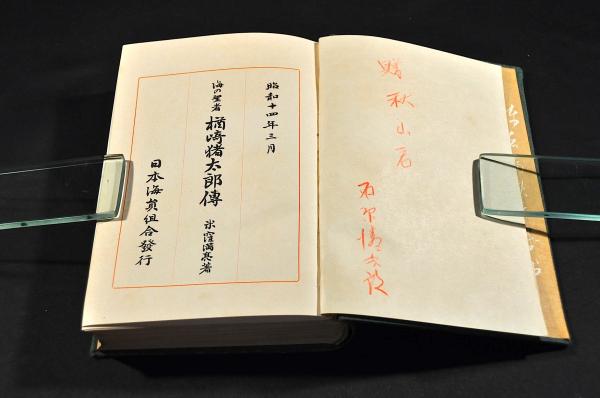 贈 秋山君
昭和十四年三月
海の聖者 楢崎猪太郎傳 米窪滿亮著
日本海員組合發行